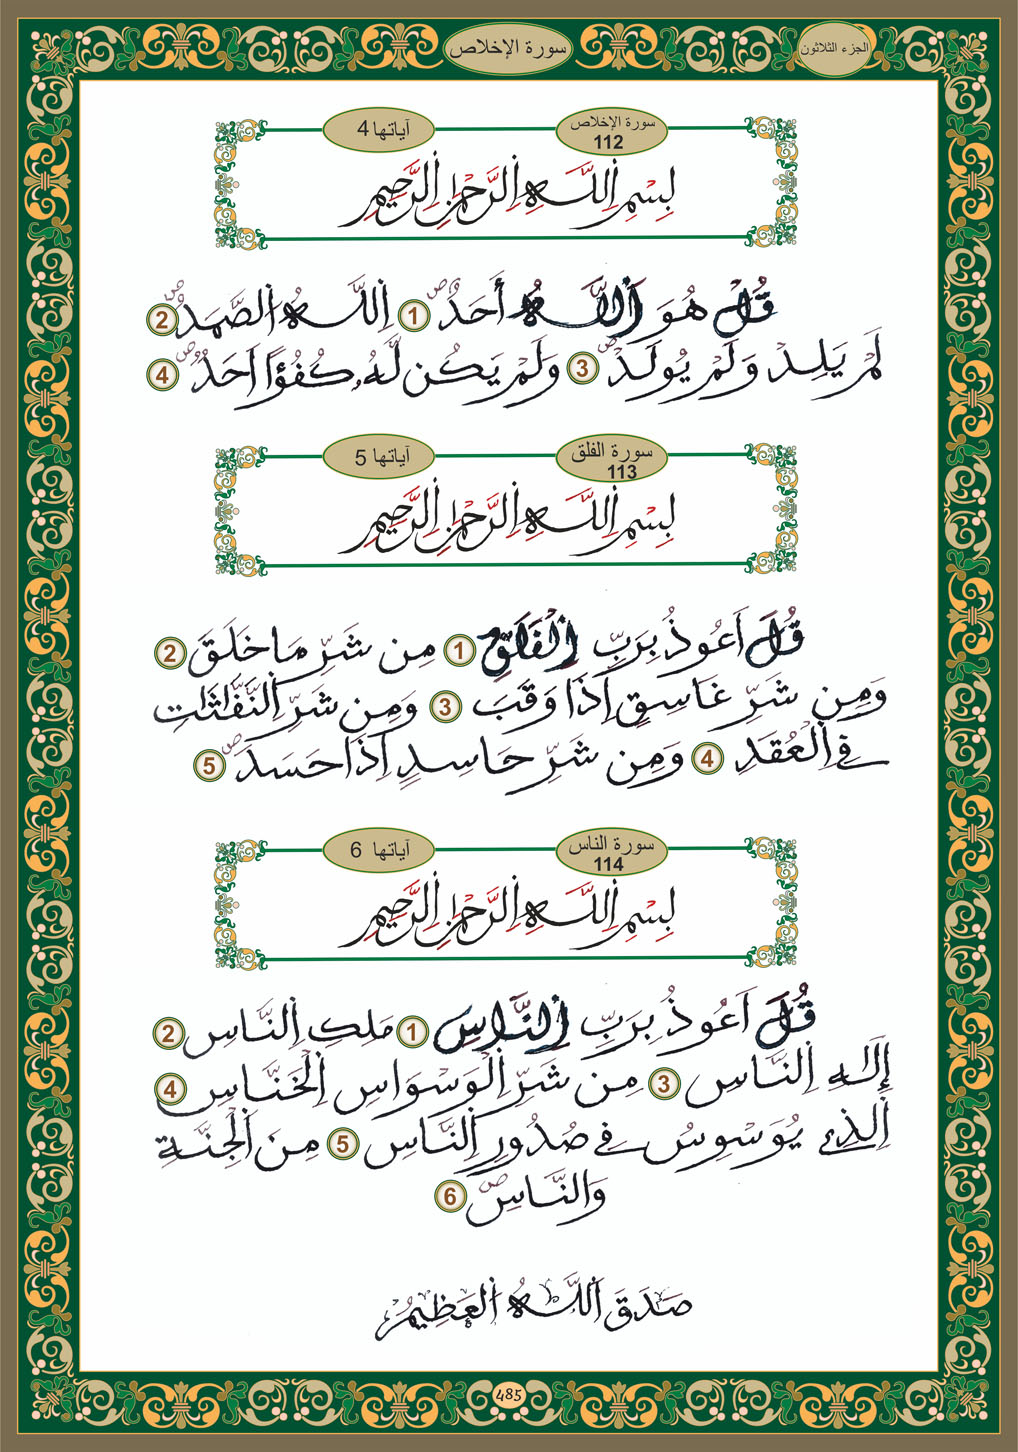 الجزء الثلاثون
سورة الإخلاص
سورة الإخلاص 112
آياتها 4
بِسْمِ اِللَّهِ اِلرَّحْمَٰنِ اِلرَّحِيمِ
قُلْ هُوَ اَللَّهُ أَحَدٌ ص 1 اِللَّهُ اُلصَّمَدُ ص 2
لَمْ يَلِدْ وَلَمْ يُولَدْ ص 3 وَلَمْ يَكُن لَّهُۥ كُفُؤًا اَحَدٌ ص 4
سورة الفلق 113
آياتها 5
بِسْمِ اِللَّهِ اِلرَّحْمَٰنِ اِلرَّحِيمِ
قُلَ اَعُوذُ بِرَبِّ اِلْفَلَقِ 1 مِن شَرِّ مَا خَلَقَ 2
وَمِن شَرِّ غَاسِقٍ اِذَا وَقَبَ 3 وَمِن شَرِّ اِلنَّفَّٰثَٰتِ
فِے اِلْعُقَدِ 4 وَمِن شَرِّ حَاسِدٍ اِذَا حَسَدَ ص 5
سورة الناس 114
آياتها 6
بِسْمِ اِللَّهِ اِلرَّحْمَٰنِ اِلرَّحِيمِ
قُلَ اَعُوذُ بِرَبِّ اِلنَّاسِ 1 مَلِكِ اِلنَّاسِ 2
إِلَٰهِ اِلنَّاسِ 3 مِن شَرِّ اِلْوَسْوَاسِ اِلْخَنَّاسِ 4
اِلذِے يُوَسْوِسُ فِے صُدُورِ اِلنَّاسِ 5 مِنَ اَلْجِنَّةِ
وَالنَّاسِ ص 6
صَدَقَ اَللَّهُ اُلْعَظِيمُ
485